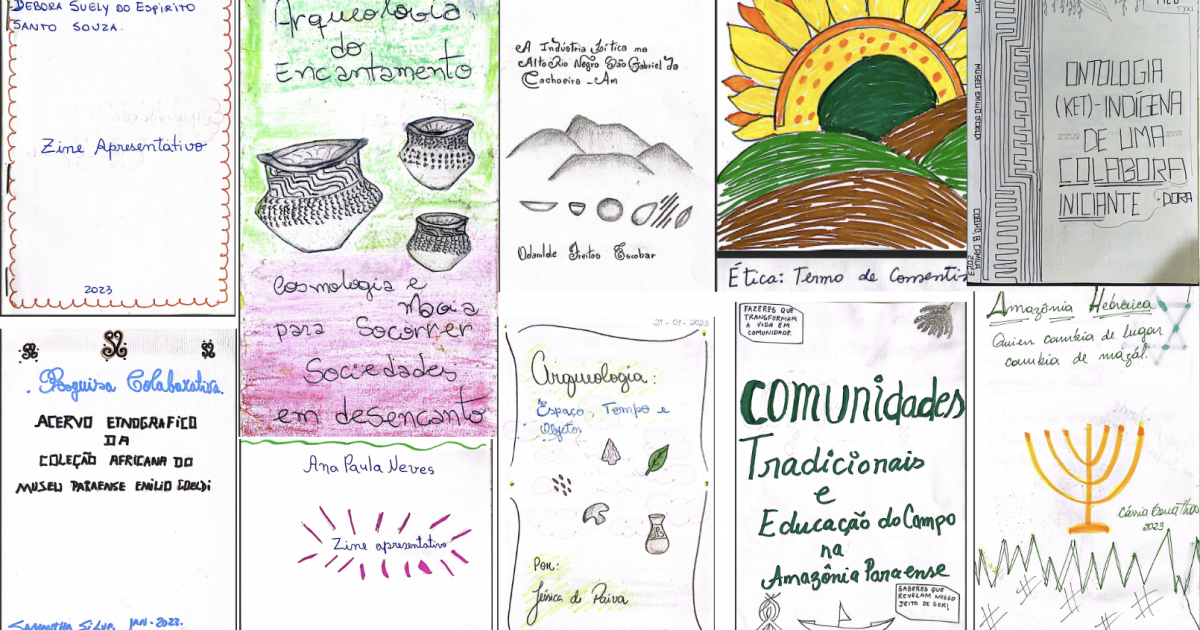 DEBORA SUELY DO ESPIRITO
SANTO SOUZA.
Zine Apresentativo
2023
Arqueologia
do
Encantamento
Cosmologia e
Maia
para Socorrer
Sociedades
em desencanto
A Indústria Lítica no
Alto Rio Negro São Gabriel da
Cachoeira - Am
Odanilde Freitas Escobar
Ética: Termo de Consenti
ONTOLOGIA
(KET)-INDÍGENA
DE UMA
COLABORA
INICIANTE
DORA
MUSEU EMILIO GOELDI
2023
Pesquisa Colaborativa.
ACERVO ETNOGRAFICO
DA
COLEÇÃO AFRICANA DO
MUSEU PARAENSE EMILIO GOELDI
SAMANTHA SILVA JAN-2023.
Ana Paula Neves
Zine apresentativo
21-01-2023
Arqueologia:
Espaço, Tempo e
Objetos
Por:
Jéssica de Paiva
FAZERES QUE
TRANSFORMAM
A VIDA EM
COMUNIDADE.
COMUNIDADES
Tradicionais
e
Educação do Campo
na
Amazônia Paraense
SABERES QUE
REVELAM NOSSO
JEITO DE SER!
Amazônia Hebraica
Quien cambia de lugar
cambia de mazal.
Cássia
2023